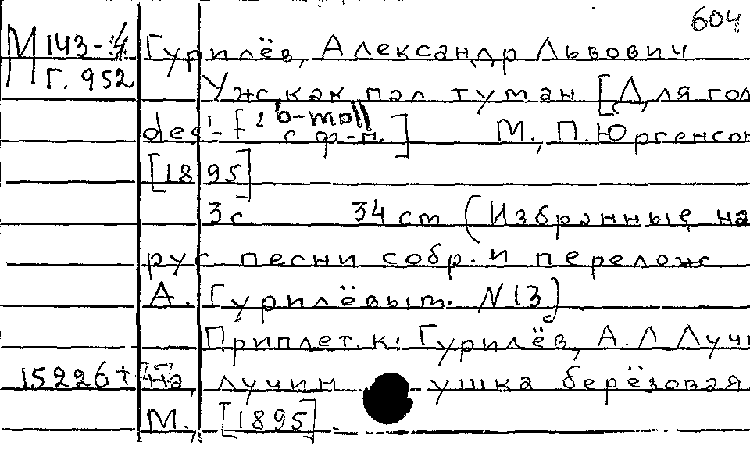 604
М 143-4 Гурилёв, Александр Львович
Г. 952 Уж как пал туман [Для гол
des'-f² b-moll с ф-п.] М., П. Юргенсон
[1895]
3 с 34 cm (Избранные на
рус песни собр. и перелож
А. Гурилёвым. N 13)
Приплет. к: Гурилёв, А Л Лучи
15226 на, лучин ушка берёзовая
М., [1895].